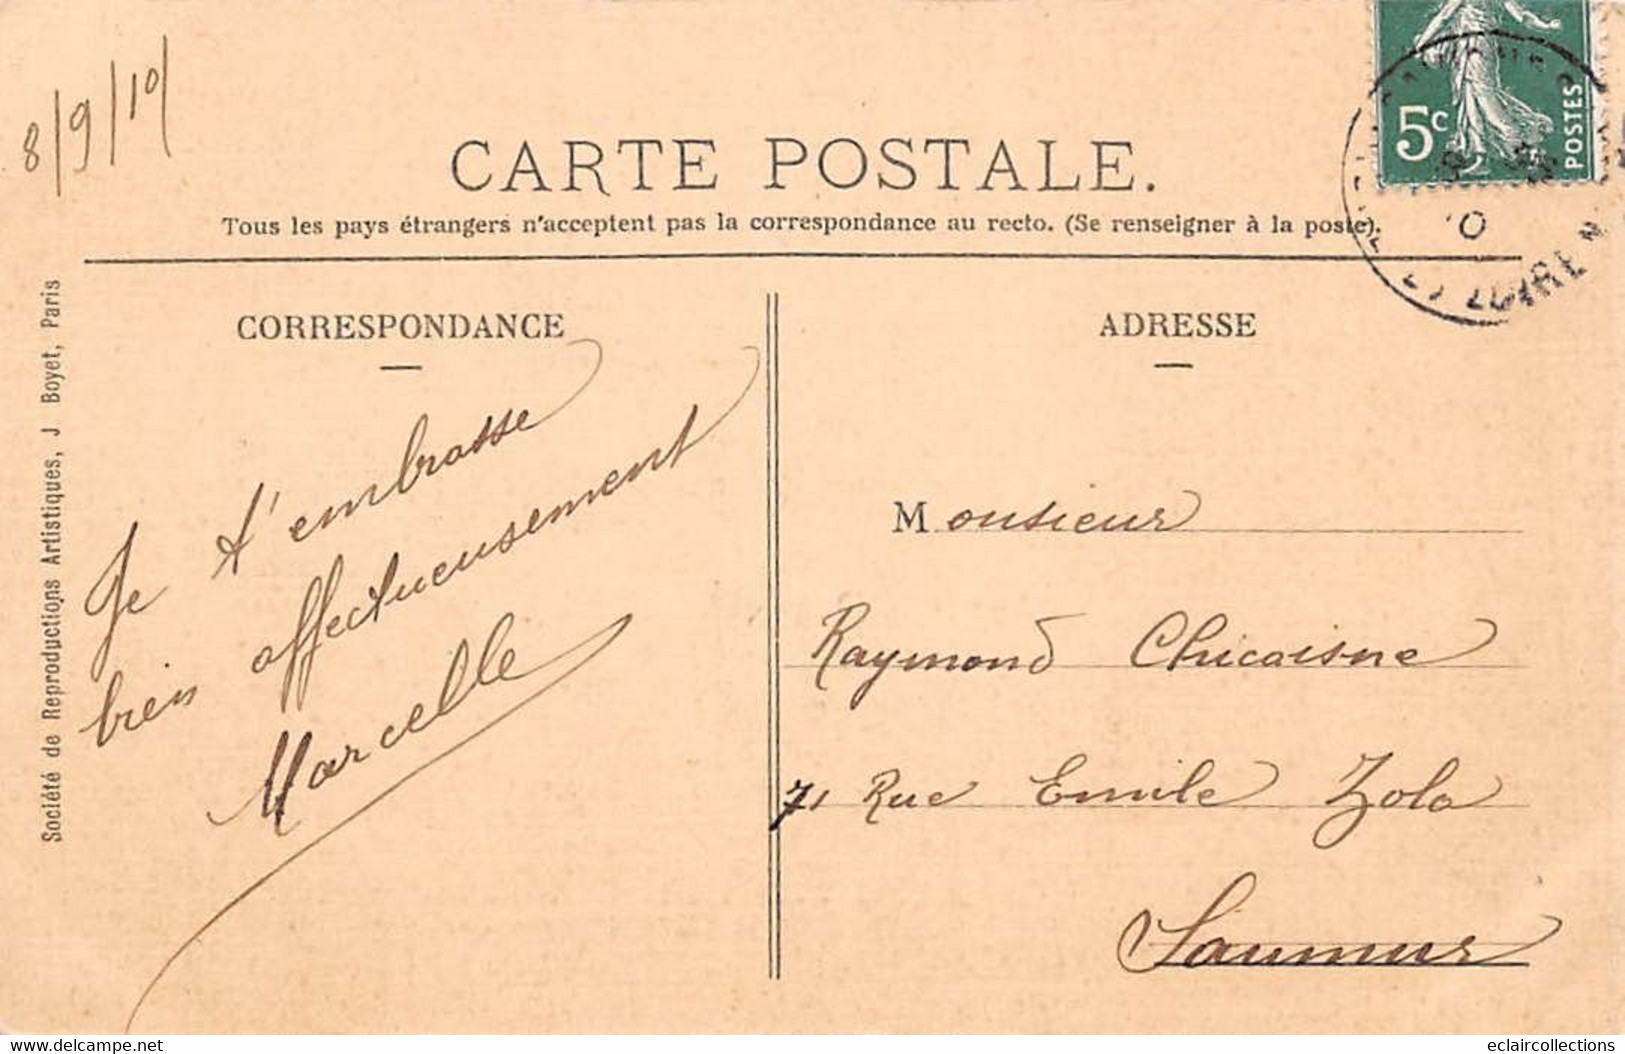 8/9/10
CARTE POSTALE.
Tous les pays étrangers n'acceptent pas la correspondance au recto. (Se renseigner à la poste).
5c
POSTES
10
ET LOIRE
Société de Reproductions Artistiques, J Boyet, Paris
CORRESPONDANCE
Je t'embrasse
bien affectueusement
Marcelle
ADRESSE
Monsieur
Raymond Chicoisne
71 Rue Emile Zola
Saumur
eclaircollections
https://www.delcampe.net